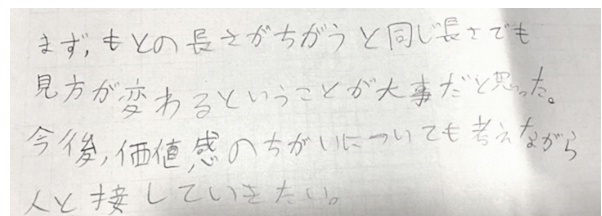 まず,もとの長さがちがうと同じ長さでも
見方が変わるということが大事だと思った。
今後,価値感のちがいについても考えながら
人と接していきたい。